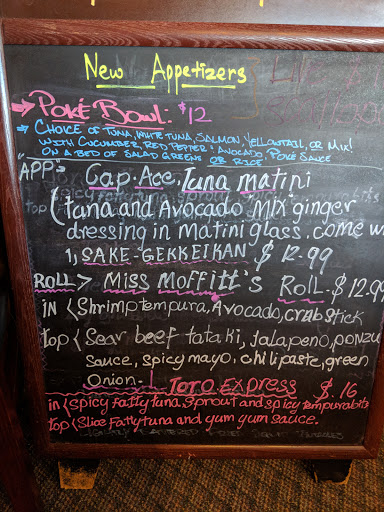 New Appetizers
POKÉ BOWL: $12
CHOICE OF TUNA, WHITE TUNA, SALMON, YELLOWTAIL, OR MIX!
WITH CUCUMBER, RED PEPPER & AVOCADO POKÉ SAUCE
ON A BED OF SALAD GREENS OR RICE
APP: Cap. Ace, Tuna matini
(tuna and Avocado mix ginger
dressing in matini glass. come w
1, SAKE-GEKKEIKAN $ 12.99
ROLL> Miss Moffitt's Roll - $12.9
in (Shrimp tempura, Avocado, crab stick
top (Sear beef tataki, Jalapeno, ponzu
Sauce, spicy mayo, chili paste, green
Onion - TORO Express $.16
in (Spicy Fatty tuna, Sprout and spicy tempurabits
top (Slice Fatty tuna and yum yum sauce.